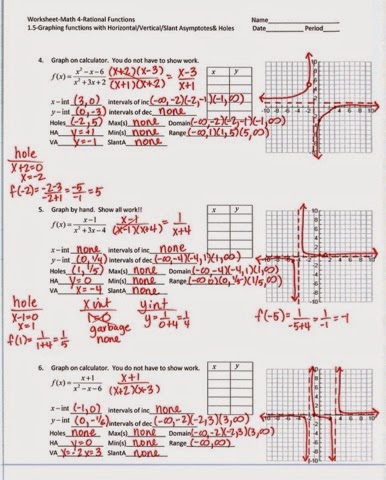 Worksheet-Math 4-Rational Functions Name
1.5-Graphing functions with Horizontal/Vertical/Slant Asymptotes& Holes Date Period
4. Graph on calculator. You do not have to show work.
f(x)= x²-x-6 / x²+3x+2 (x+2)(x-3) / (x+1)(x+2) = x-3 / x+1
x y
x-int (3,0) intervals of inc (-∞,-2)(-2,-1)(-1,∞)
y-int (0,-3) intervals of dec none
Holes (-2,5) Max(s) none Domain (-∞,-2)(-2,-1)(-1,∞)
HA y=1 Min(s) none Range (-∞,1)(1,5)(5,∞)
VA x=-1 SlantA none
hole
x+2=0
x=-2
f(-2)= -2-3 / -2+1 = -5 / -1 = 5
5. Graph by hand. Show all work!!
f(x)= x-1 / x²+3x-4 x-1 / (x-1)(x+4) = 1 / x+4
x y
x-int none intervals of inc none
y-int (0,1/4) intervals of dec (-∞,-4)(-4,1)(1,∞)
Holes (1,1/5) Max(s) none Domain (-∞,-4)(-4,1)(1,∞)
HA y=0 Min(s) none Range (-∞,0)(0,1/5)(1/5,∞)
VA x=-4 SlantA none
hole
x-1=0
x=1
f(1)= 1 / 1+4 = 1 / 5
x int
1=0
garbage
none
y int
y= 1 / 0+4 = 1 / 4
f(-5)= 1 / -5+4 = 1 / -1 = -1
6. Graph on calculator. You do not have to show work.
f(x)= x+1 / x²-x-6 x+1 / (x+2)(x-3)
x y
x-int (-1,0) intervals of inc none
y-int (0,-1/6) intervals of dec (-∞,-2)(-2,3)(3,∞)
Holes none Max(s) none Domain (-∞,-2)(-2,3)(3,∞)
HA y=0 Min(s) none Range (-∞,∞)
VA x=-2 x=3 SlantA none